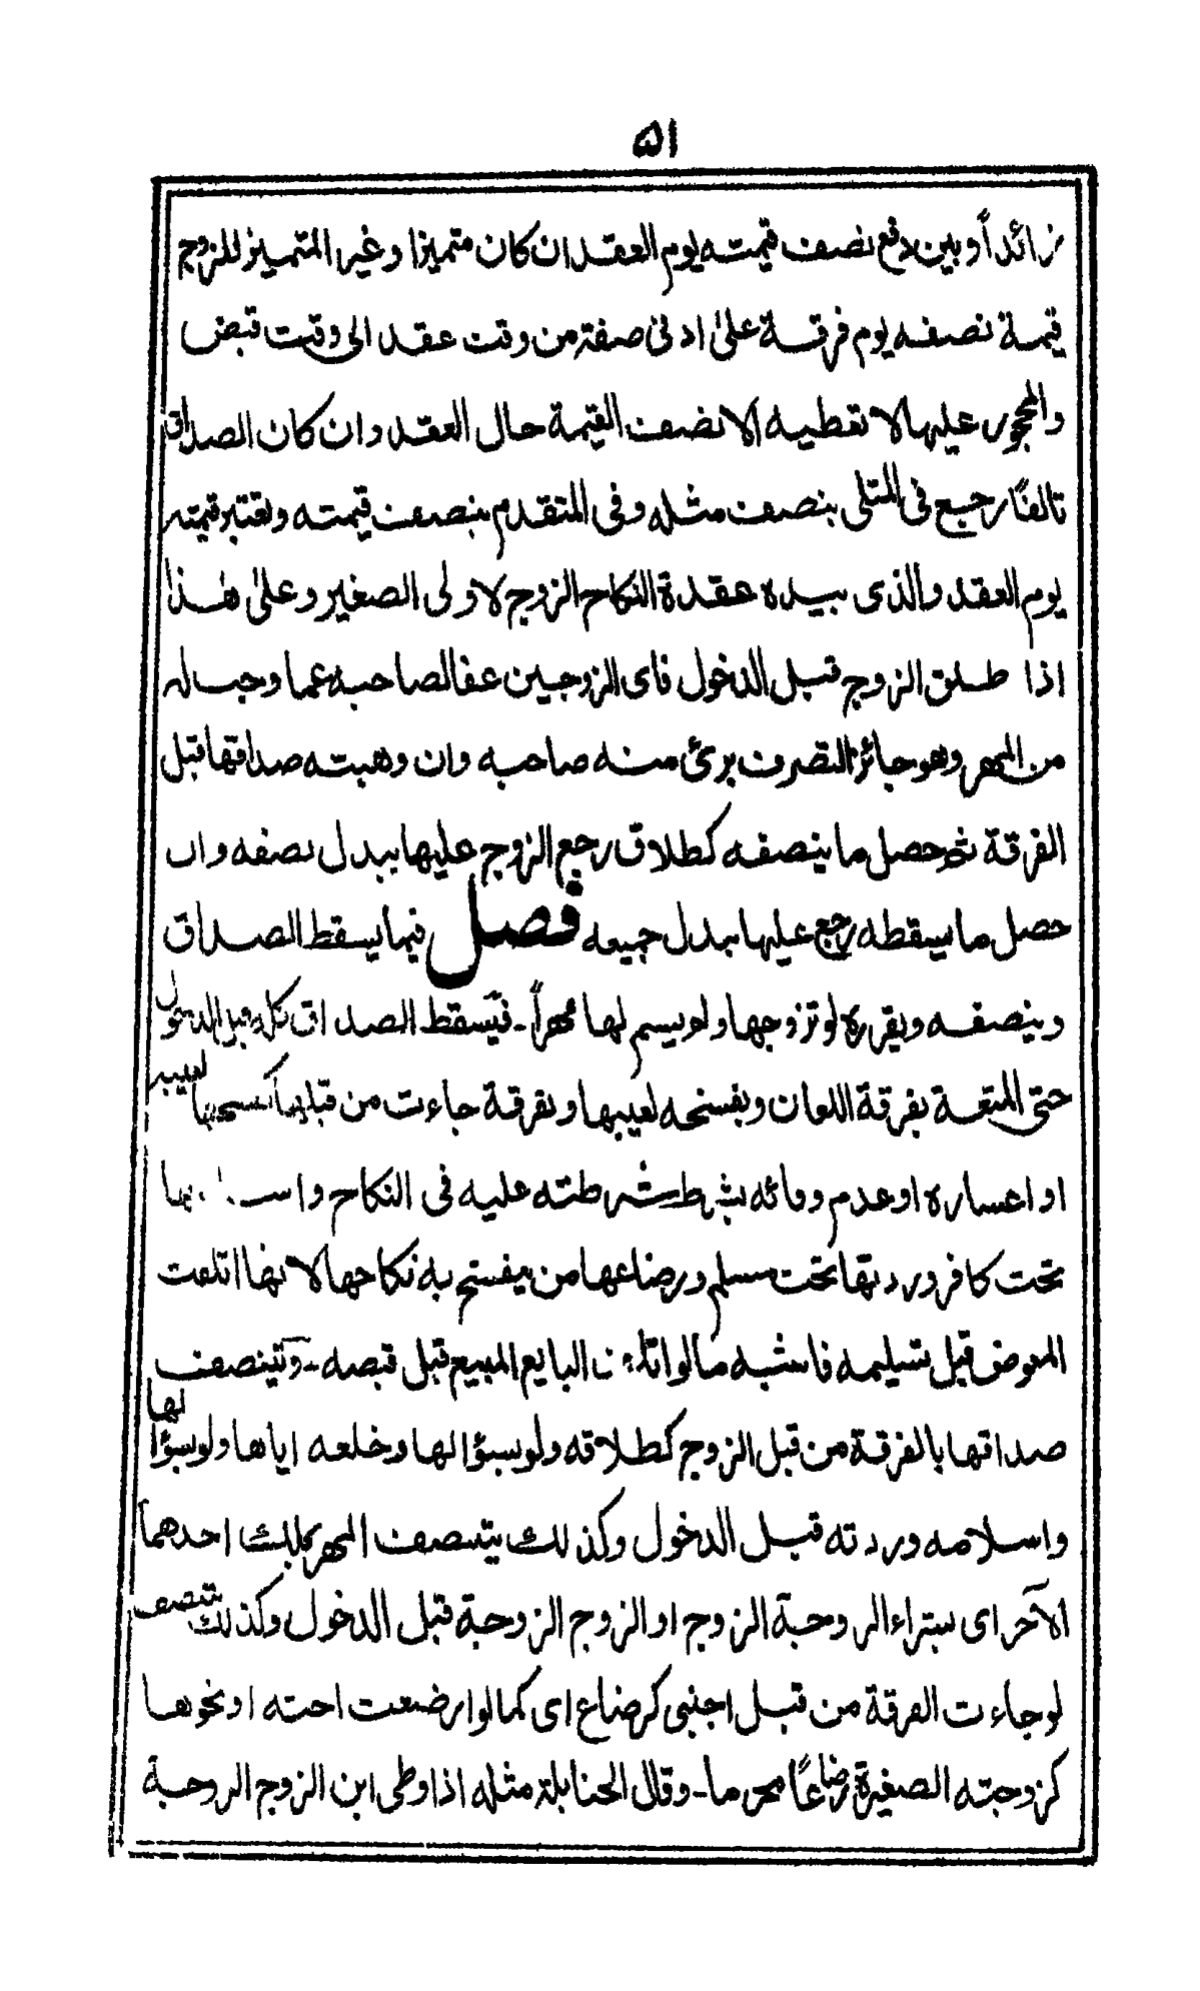 ٥١
زائداً وبين دفع نصف قيمته يوم العقد ان كان متميزا وغير المتميز للزوج
قيمة نصفه يوم فرقة على ادنى صفة من وقت عقد الى وقت قبض
والمحجور عليها لا تعطيه الا نصف القيمة حال العقد وان كان الصداق
تالفًا رجع فى المثلى بنصف مثله وفى المتقدم بنصف قيمته وتعتبر قيمته
يوم العقد والذى بيده عقدة النكاح الزوج لا ولى الصغير وعلى هٰذا
اذا طلق الزوج قبل الدخول فاى الزوجين عفا لصاحبه عما وجب له
من المهر وهو جائز التصرف برئ منه صاحبه وان وهبته صداقها قبل
الفرقة ثم حصل ما ينصفه كطلاق رجع الزوج عليها ببدل نصفه وان
حصل ما يسقطه رجع عليها ببدل جميعه فصل فيما يسقط الصداق
وينصفه ويقرره لو تزوجها ولم يسم لها مهراً - فيسقط الصداق كله قبل الدخول
حتى المتعة بفرقة اللعان وبفسخه لعيبها وبفرقة جاءت من قبلها كفسخها لعيبه
او اعساره او عدم وفائه بشرط شرطته عليه فى النكاح
تحت كافر وردتها تحت مسلم ورضاعها من ينفسخ به نكاحها لانها اتلفت
المعوض قبل تسليمه فاشبه ما لو اتلف البايع المبيع قبل قبضه - ويتنصف
صداقها بالفرقة من قبل الزوج كطلاقه ولو بسؤالها وخلعه اياها ولو بسؤالها
واسلامه وردته قبل الدخول وكذلك يتنصف المهر بملك احدهما
الآخر اى بشراء الزوجة الزوج او الزوج الزوجة قبل الدخول وكذلك يتنصف
لو جاءت الفرقة من قبل اجنبى كرضاع اى كما لو ارضعت اخته او نحوها
كزوجته الصغيرة رضاعًا محرما - وقال الحنابلة مثله اذا وطى ابن الزوج الزوجة